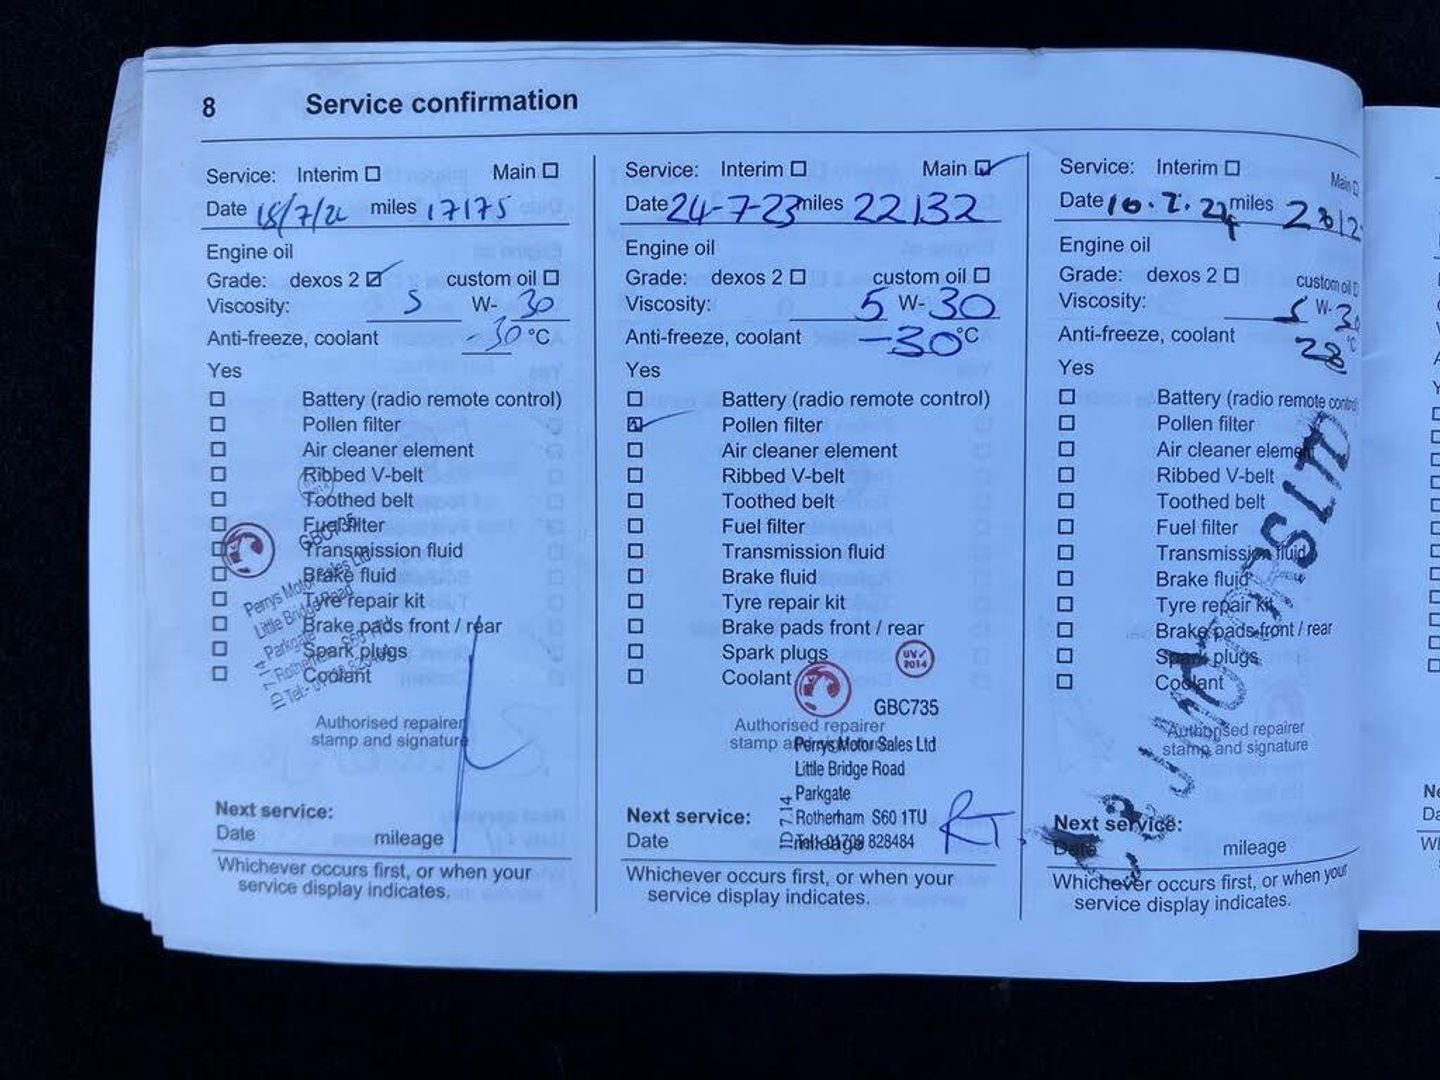 8 Service confirmation
Service: Interim Main
Date 18/7/2 miles 17175
Engine oil
Grade: dexos 2 custom oil
Viscosity: 5 W- 30
Anti-freeze, coolant -30 °C
Yes
Battery (radio remote control)
Pollen filter
Air cleaner element
Ribbed V-belt
Toothed belt
Fuel filter
Transmission fluid
Brake fluid
Tyre repair kit
Brake pads front / rear
Spark plugs
Coolant
Perrys Motor Sales Ltd
Little Bridge Road
Parkgate
Authorised repairer
stamp and signature
Next service:
Date mileage
Whichever occurs first, or when your
service display indicates.
Service: Interim Main
Date 24-7-23 miles 22132
Engine oil
Grade: dexos 2 custom oil
Viscosity: 5 W- 30
Anti-freeze, coolant -30 °C
Yes
Battery (radio remote control)
Pollen filter
Air cleaner element
Ribbed V-belt
Toothed belt
Fuel filter
Transmission fluid
Brake fluid
Tyre repair kit
Brake pads front / rear
Spark plugs
Coolant
2014
GBC735
Authorised repairer
stamp
Perrys Motor Sales Ltd
Little Bridge Road
Parkgate
Rotherham S60 1TU
Tel: 01709 828484
ID 7.14
RT
Next service:
Date mileage
Whichever occurs first, or when your
service display indicates.
Service: Interim Main
Date miles
Engine oil
Grade: dexos 2 custom oil
Viscosity: 5 W- 30
Anti-freeze, coolant 28 °C
Yes
Battery (radio remote control)
Pollen filter
Air cleaner element
Ribbed V-belt
Toothed belt
Fuel filter
Transmission fluid
Brake fluid
Tyre repair kit
Brake pads front / rear
Spark plugs
Coolant
LTD
Authorised repairer
stamp and signature
Next service:
Date mileage
Whichever occurs first, or when your
service display indicates.